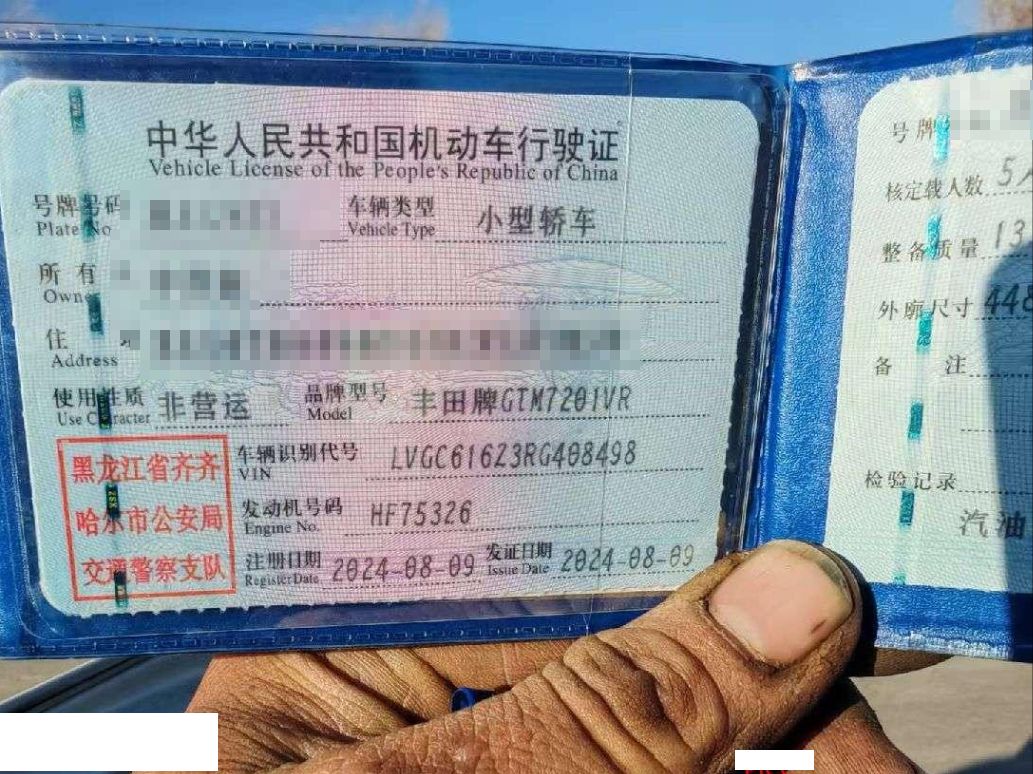 中华人民共和国机动车行驶证
Vehicle License of the People's Republic of China
号牌号码
Plate No
车辆类型 小型轿车
Vehicle Type
所有
Owne
住
Address
使用性质 非营运
Use Character
品牌型号 丰田牌GTM7201VR
Model
黑龙江省齐齐
哈尔市公安局
交通警察支队
车辆识别代号 LVGC61623RG408498
VIN
发动机号码 HF75326
Engine No.
注册日期 2024-08-09
Register Date
发证日期 2024-08-09
Issue Date
号牌
核定载人数 5
整备质量 13
外廓尺寸 446
备 注
检验记录
汽油